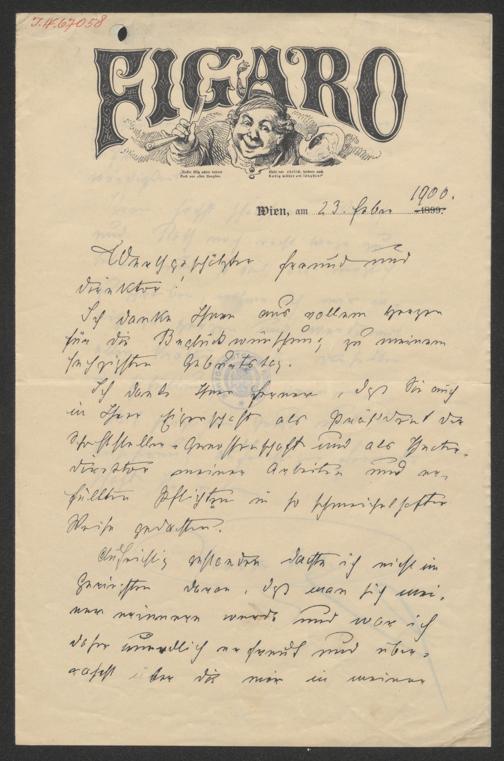 I.N. 67058
FIGARO
Wien, am 23. Feber 1900.
1899.
Werthgeschätzter Freund und
Direktor!
Ich danke Ihnen aus vollem Herzen
für die Beglückwünschung zu meinem
sechzigsten Geburtstag.
Ich danke Ihnen ferner, daß Sie auch
in Ihrer Eigenschaft als Präsident der
Schriftsteller-Genossenschaft und als Theater-
direktor meiner Arbeiten und er-
füllten Pflichten in so schmeichelhafter
Weise gedachten.
Aufrichtig gestanden dachte ich nicht im
Geringsten daran, daß man sich mei-
ner erinnern werde und war ich
daher unendlich erfreut und über-
rascht über die mir in meiner